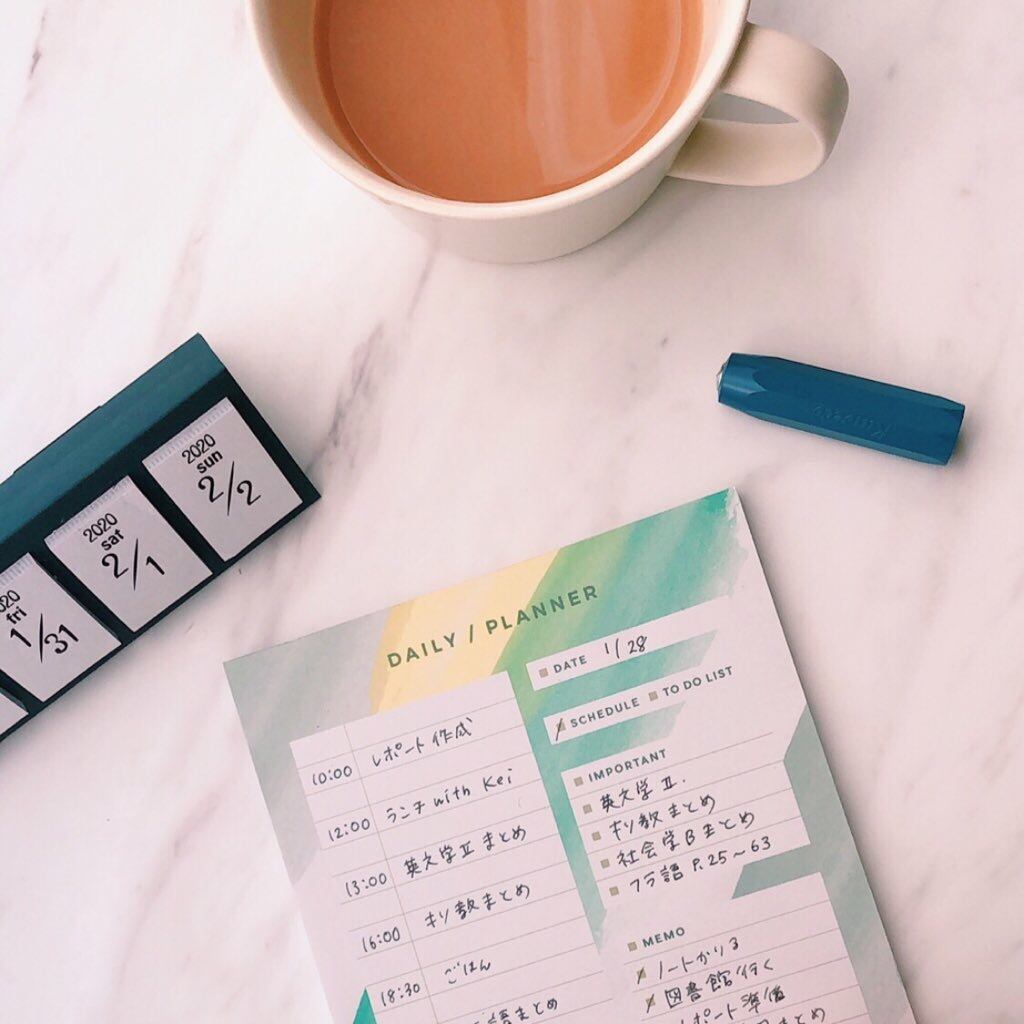 2020
sun
2/2
2020
sat
2/1
fri
1/31
Kaweco
DAILY / PLANNER
DATE 1/28
SCHEDULE TO DO LIST
10:00 レポート作成
12:00 ランチ with Kei
13:00 英文学Ⅱまとめ
16:00 キリ教まとめ
18:30 ごはん
語まとめ
IMPORTANT
英文学Ⅱ.
キリ教まとめ
社会学Bまとめ
フラ語 P.25~63
MEMO
ノートかりる
図書館行く
レポート準備
まとめ